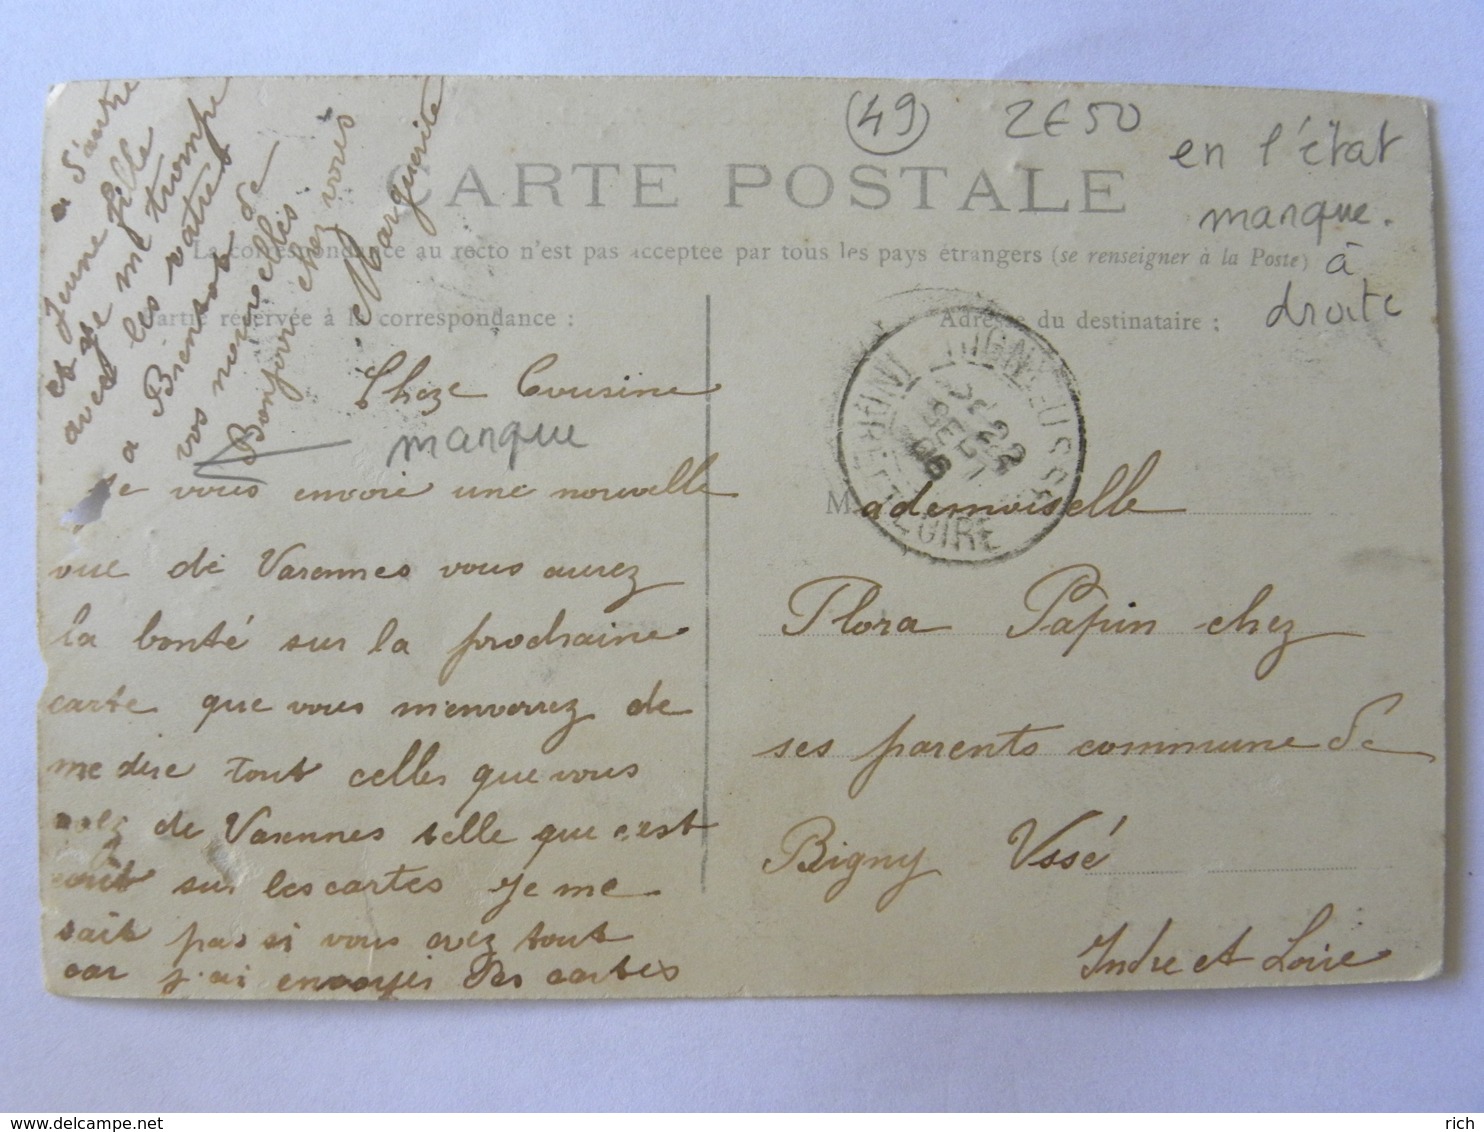 (49) 2E50
en l'état
manque.
à
droite
CARTE POSTALE
La correspondance au recto n'est pas acceptée par tous les pays étrangers (se renseigner à la Poste)
Partie réservée à la correspondance :
Adresse du destinataire :
Cheze Cousine
manque
Je vous envoie une nouvelle
vue de Varennes vous aurez
la bonté sur la prochaine
carte que vous m'enverrez de
me dire tout celles que vous
avez de Varennes telle que c'est
écrit sur les cartes Je me
sait pas si vous avez tout
car j'ai envoyér des cartes
a d'autre
jeune fille
et je me trompe
avec les vôtres
a Bientot de
vos nouvelles
Bonjour chez vous
Marguerite
INDRE ET LOIRE
22
SEPT
06
Mademoiselle
Flora Papin chez
ses parents commune de
Bigny Ussé
Indre et Loire
rich